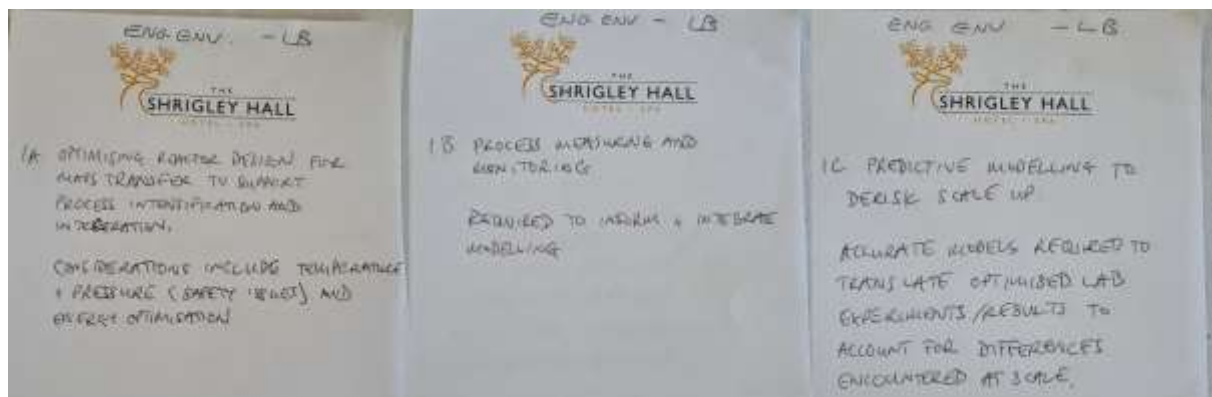 ENG ENV. - LB
THE
SHRIGLEY HALL
HOTEL & SPA
1A OPTIMISING REACTOR DESIGN FOR
MASS TRANSFER TO SUPPORT
PROCESS INTENSIFICATION AND
INTEGRATION.
CONSIDERATIONS INCLUDE TEMPERATURE
+ PRESSURE (SAFETY ISSUES) AND
ENERGY OPTIMISATION
ENG ENV - LB
THE
SHRIGLEY HALL
HOTEL & SPA
1B PROCESS MEASURING AND
MONITORING
REQUIRED TO INFORM + INTEGRATE
MODELLING
ENG ENV - LB
THE
SHRIGLEY HALL
HOTEL & SPA
1C PREDICTIVE MODELLING TO
DERISK SCALE UP
ACCURATE MODELS REQUIRED TO
TRANSLATE OPTIMISED LAB
EXPERIMENTS/RESULTS TO
ACCOUNT FOR DIFFERENCES
ENCOUNTERED AT SCALE.